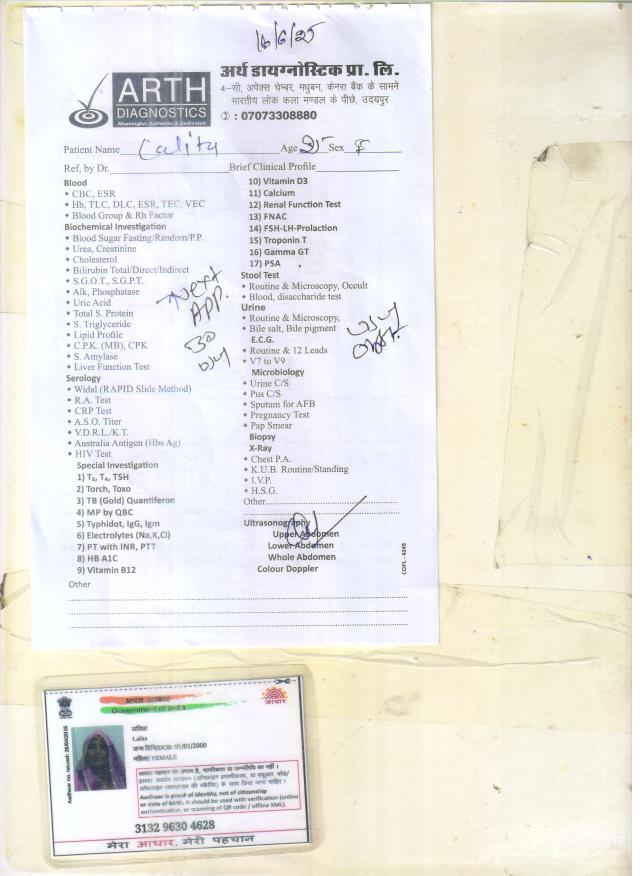 16/6/25
ARTH
DIAGNOSTICS
Meaningful, Authentic & Dedicated
अर्थ डायग्नोस्टिक प्रा. लि.
4-सी, अपेक्स चेम्बर, मधुबन, केनरा बैंक के सामने
भारतीय लोक कला मण्डल के पीछे, उदयपुर
: 07073308880
Patient Name Lalita Age 25 Sex F
Ref, by Dr. Brief Clinical Profile
Blood
• CBC, ESR
• Hb, TLC, DLC, ESR, TEC, VEC
• Blood Group & Rh Factor
Biochemical Investigation
• Blood Sugar Fasting/Random/P.P.
• Urea, Creatinine
• Cholesterol
• Bilirubin Total/Direct/Indirect
• S.G.O.T., S.G.P.T.
• Alk, Phosphatase
• Uric Acid
• Total S. Protein
• S. Triglyceride
• Lipid Profile
• C.P.K. (MB), CPK
• S. Amylase
• Liver Function Test
Serology
• Widal (RAPID Slide Method)
• R.A. Test
• CRP Test
• A.S.O. Titer
• V.D.R.L./K.T.
• Australia Antigen (Hbs Ag)
• HIV Test
Special Investigation
1) T₃, T₄, TSH
2) Torch, Toxo
3) TB (Gold) Quantiferon
4) MP by QBC
5) Typhidot, IgG, Igm
6) Electrolytes (Na,K,Cl)
7) PT with INR, PTT
8) HB A1C
9) Vitamin B12
Other
Next
APP.
10) Vitamin D3
11) Calcium
12) Renal Function Test
13) FNAC
14) FSH-LH-Prolaction
15) Troponin T
16) Gamma GT
17) PSA
Stool Test
• Routine & Microscopy, Occult
• Blood, disaccharide test
Urine
• Routine & Microscopy,
• Bile salt, Bile pigment
E.C.G.
• Routine & 12 Leads
• V7 to V9
Microbiology
• Urine C/S
• Pus C/S
• Sputum for AFB
• Pregnancy Test
• Pap Smear
Biopsy
X-Ray
• Chest P.A.
• K.U.B. Routine/Standing
• I.V.P.
• H.S.G.
Other
Ultrasonography
Upper Abdomen
Lower Abdomen
Whole Abdomen
Colour Doppler
COPL - 4249
भारत सरकार
Government of India
आधार
Aadhaar no. issued: 26/04/2015
ललिता
Lalita
जन्म तिथि/DOB: 01/01/2000
महिला/ FEMALE
आधार पहचान का प्रमाण है, नागरिकता या जन्मतिथि का नहीं ।
इसका उपयोग सत्यापन (ऑनलाइन प्रमाणीकरण, या क्यूआर कोड/
ऑफलाइन एक्सएमएल की स्कैनिंग) के साथ किया जाना चाहिए ।
Aadhaar is proof of identity, not of citizenship
or date of birth. It should be used with verification (online
authentication, or scanning of QR code / offline XML).
3132 9630 4628
मेरा आधार, मेरी पहचान